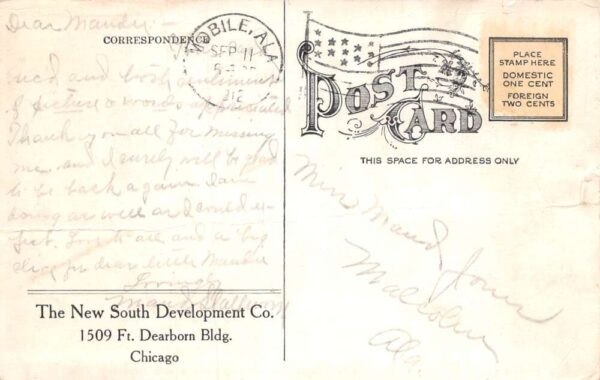 Dear Maudy:—
CORRESPONDENCE
MOBILE, ALA.
SEP 11
1912
Rec'd and both sentiment
of picture & words appreciated
Thank you all for missing
me and I surely will be glad
to be back again. I am
doing as well as I could ex-
pect. Love to all and a big
for dear little Maudie
Lovingly
Maud
The New South Development Co.
1509 Ft. Dearborn Bldg.
Chicago
POST CARD
THIS SPACE FOR ADDRESS ONLY
PLACE
STAMP HERE
DOMESTIC
ONE CENT
FOREIGN
TWO CENTS
Miss Maud Jones
Malcolm
Ala.